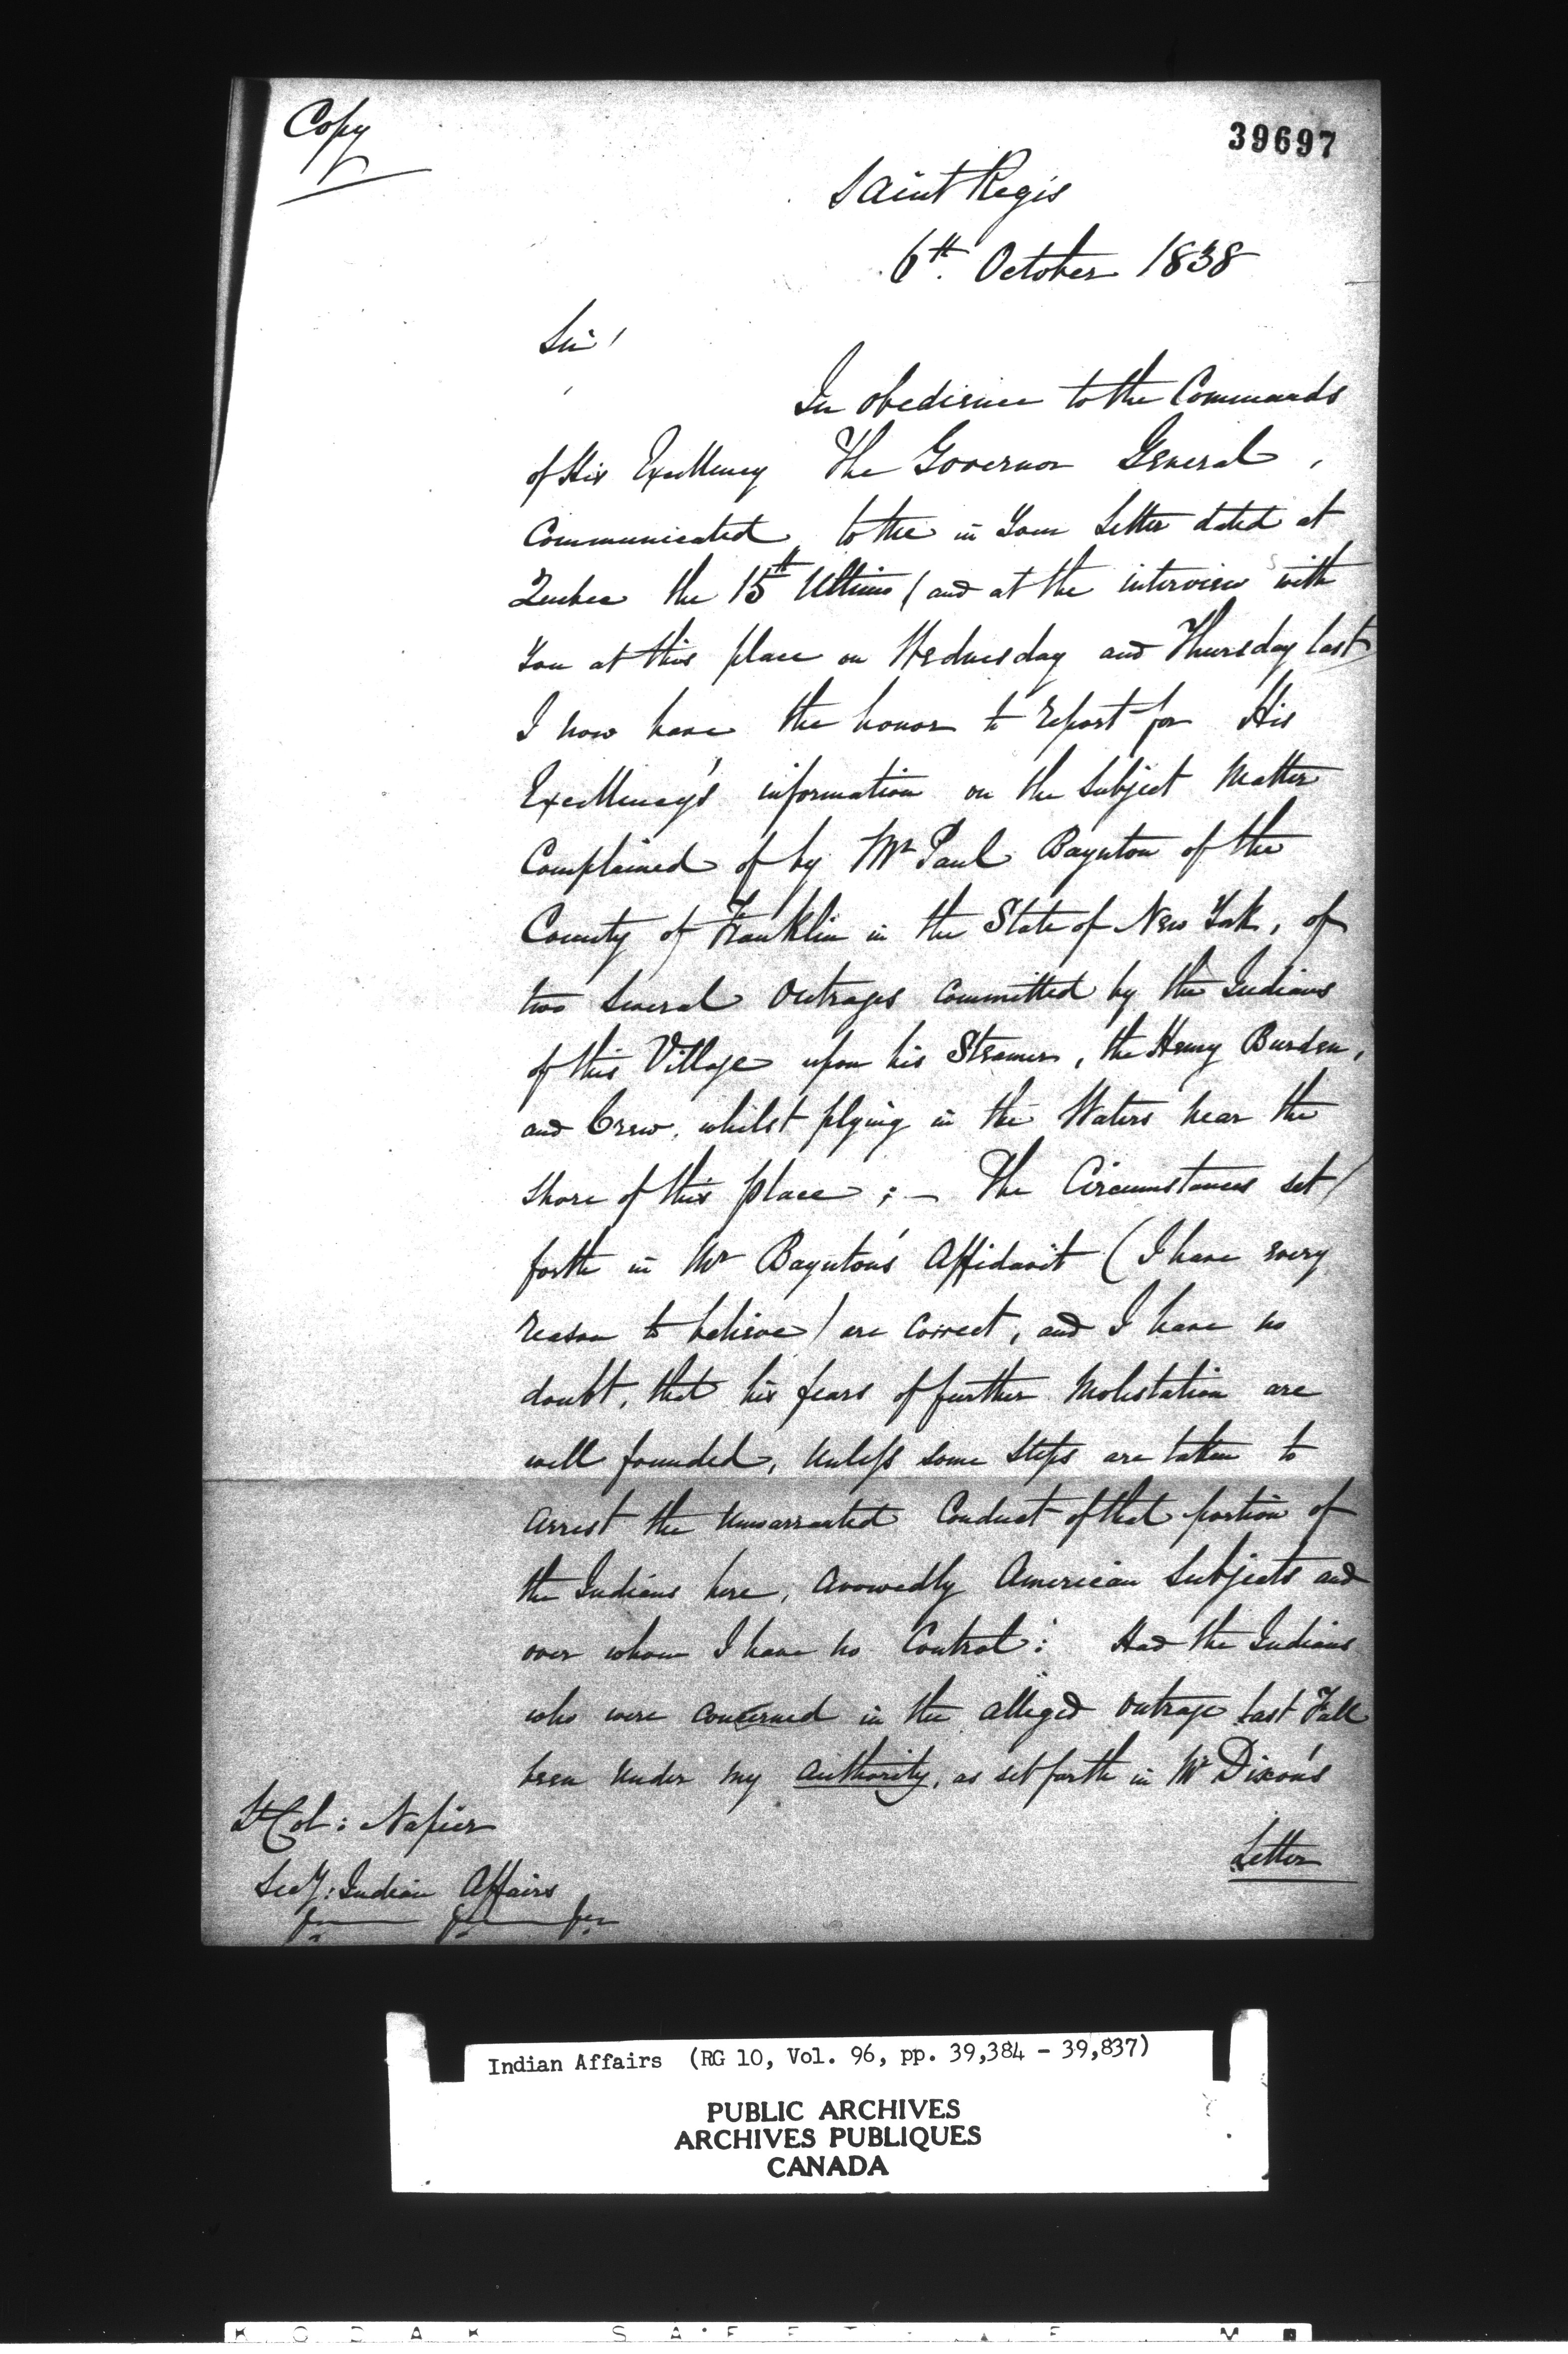 Copy
39697
Saint Regis
6th. October 1838
Sir!
In obedience to the Commands
of His Excellency The Governor General,
Communicated to me in Your Letter dated at
Quebec the 15th Ultimo (and at the interview with
You at this place on Wednesday and Thursday last)
I now have the honor to report for His
Excellency's information on the Subject Matter
Complained of by Mr Paul Baynton of the
County of Franklin in the State of New York, of
two Several Outrages Committed by the Indians
of this Village upon his Steamer, the Henry Burden,
and Crew, whilst plying in the Waters near the
shore of this place; – The Circumstances set
forth in Mr Baynton's Affidavit (I have every
reason to believe) are correct, and I have no
doubt, that his fears of further Molestation are
well founded, Unless some steps are taken to
Arrest the Unwarranted Conduct of that portion of
the Indians here, Avowedly American Subjects and
over whom I have no Control: Had the Indians
who were concerned in the alleged outrage last Fall
been Under my Authority, as set forth in Mr Dixon's
Letter
Lt Col: Napier
Secy: Indian Affairs
Indian Affairs (RG 10, Vol. 96, pp. 39,384 - 39,837)
PUBLIC ARCHIVES
ARCHIVES PUBLIQUES
CANADA